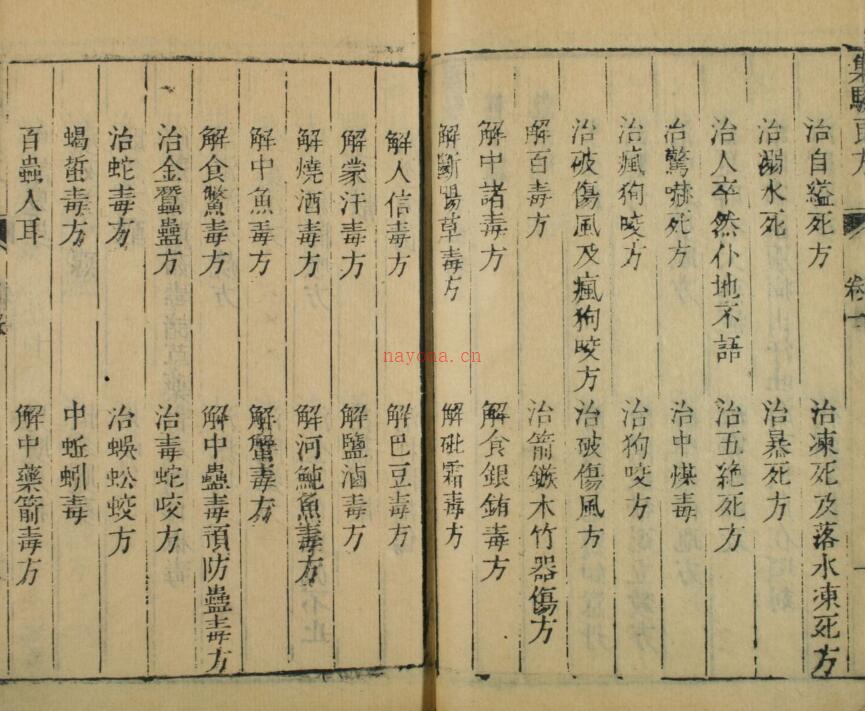 治自縊死方
治凍死及落水凍死方
治溺水死
治暴死方
治人卒然仆地不語
治五絶死方
治驚嚇死方
治中煤毒
治瘋狗咬方
治狗咬方
治破傷風及瘋狗咬方
治破傷風方
解百毒方
治箭鏃木竹器傷方
解中諸毒方
解食銀銪毒方
解斷腸草毒方
解砒霜毒方
解人信毒方
解巴豆毒方
解蒙汗毒方
解鹽滷毒方
解燒酒毒方
解河魨魚毒方
解中魚毒方
解蟹毒方
解食鱉毒方
解中蠱毒預防蠱毒方
治金蠶蠱方
治毒蛇咬方
治蛇毒方
治蜈蚣蛟方
蝎蜇毒方
中蚯蚓毒
百蟲人耳
解中藥箭毒方
nayona.cn